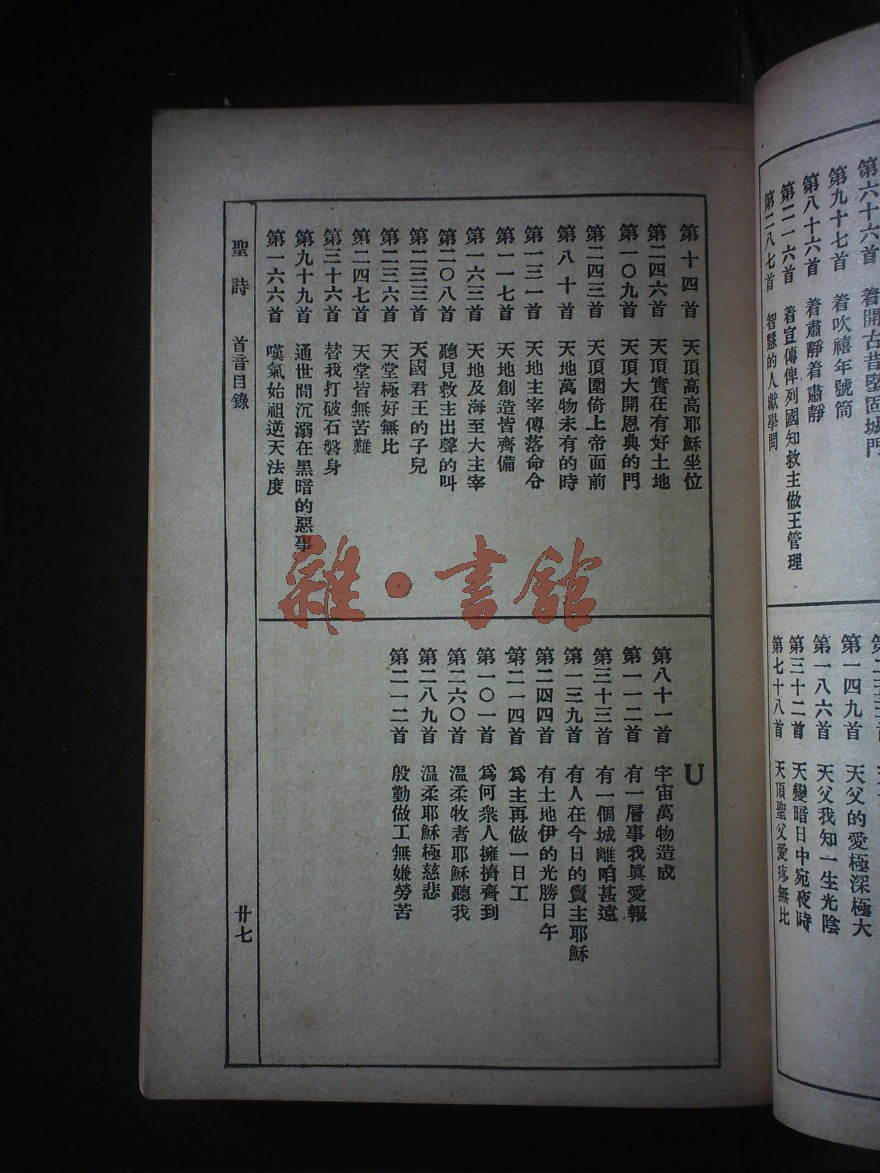 第六十六首 着開古昔堅固城門
第九十七首 着吹禧年號筒
第八十六首 着肅靜着肅靜
第二一六首 着宣傳俾列國知救主做王管理
第二八七首 智慧的人獻學問
第一四九首 天父的愛極深極大
第一八六首 天父我知一生光陰
第三十二首 天變暗日中宛夜時
第七十八首 天頂聖父愛疼無比
第十四首 天頂高高耶穌坐位
第二四六首 天頂實在有好土地
第一〇九首 天頂大開恩典的門
第二四三首 天頂圍倚上帝面前
第八十首 天地萬物未有的時
第一三一首 天地主宰傳落命令
第一一七首 天地創造皆齊備
第一六三首 天地及海至大主宰
第二〇八首 聽見救主出聲的叫
第二三三首 天國君王的子兒
第二三六首 天堂極好無比
第二四七首 天堂皆無苦難
第三十六首 替我打破石磐身
第九十九首 通世間沉溺在黑暗的惡事
第一六六首 嘆氣始祖逆天法度
U
第八十一首 宇宙萬物造成
第一一二首 有一層事我眞愛報
第三十三首 有一個城離咱甚遠
第一三九首 有人在今日的賣主耶穌
第二四四首 有土地伊的光勝日午
第二一四首 爲主再做一日工
第一〇一首 爲何衆人擁擠齊到
第二六〇首 溫柔牧者耶穌聽我
第二八九首 溫柔耶穌極慈悲
第二一二首 殷勤做工無嫌勞苦
聖詩 首音目錄 廿七
雜·書館